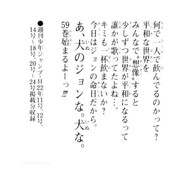 何で一人で飲んでるのかって?
平和な世界を
みんなで〝想像〟すると
少しずつ世界が平和になるって
誰かが歌ってたよね…。
キミも一杯飲まないか?
今日はジョンの命日だから。
あ、犬のジョンな。犬な。
59巻始まるよーっ!!
●週刊少年ジャンプ・H22年11号、12号、
14号〜18号、20号〜24号掲載分収録